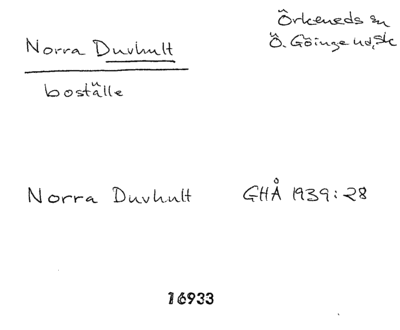 Norra Duvhult
boställe
Örkeneds sn
Ö. Göinge hd, Sk
Norra Duvhult GHÅ 1939:28
16933